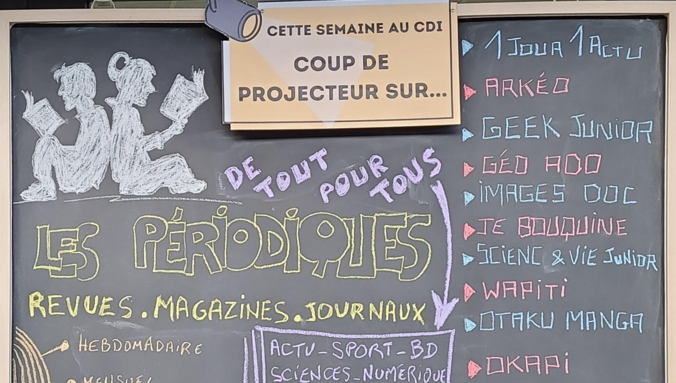 CETTE SEMAINE AU CDI
COUP DE
PROJECTEUR SUR...
DE TOUT POUR TOUS
LES PÉRIODIQUES
REVUES.MAGAZINES.JOURNAUX
HEBDOMADAIRE
MENSUEL
ACTU_SPORT_BD
SCIENCES_NUMÉRIQUE
1 JOUR 1 ACTU
ARKÉO
GEEK JUNIOR
GÉO ADO
IMAGES DOC
JE BOUQUINE
SCIENC & VIE JUNIOR
WAPITI
OTAKU MANGA
OKAPI